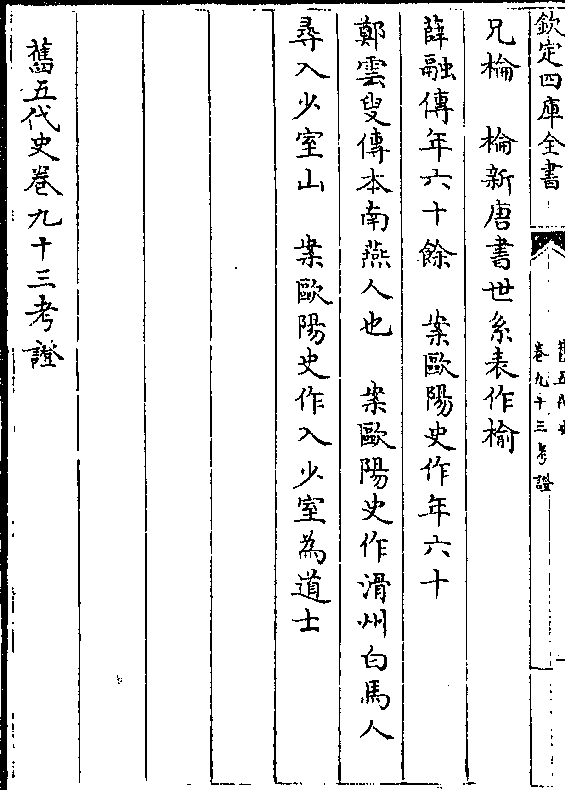 欽定四庫全書
舊五代史
卷九十三考證
兄棆　棆新唐書世系表作榆
薛融傳年六十餘　案歐陽史作年六十
鄭雲叟傳本南燕人也　案歐陽史作滑州白馬人
尋入少室山　案歐陽史作入少室為道士
舊五代史卷九十三考證